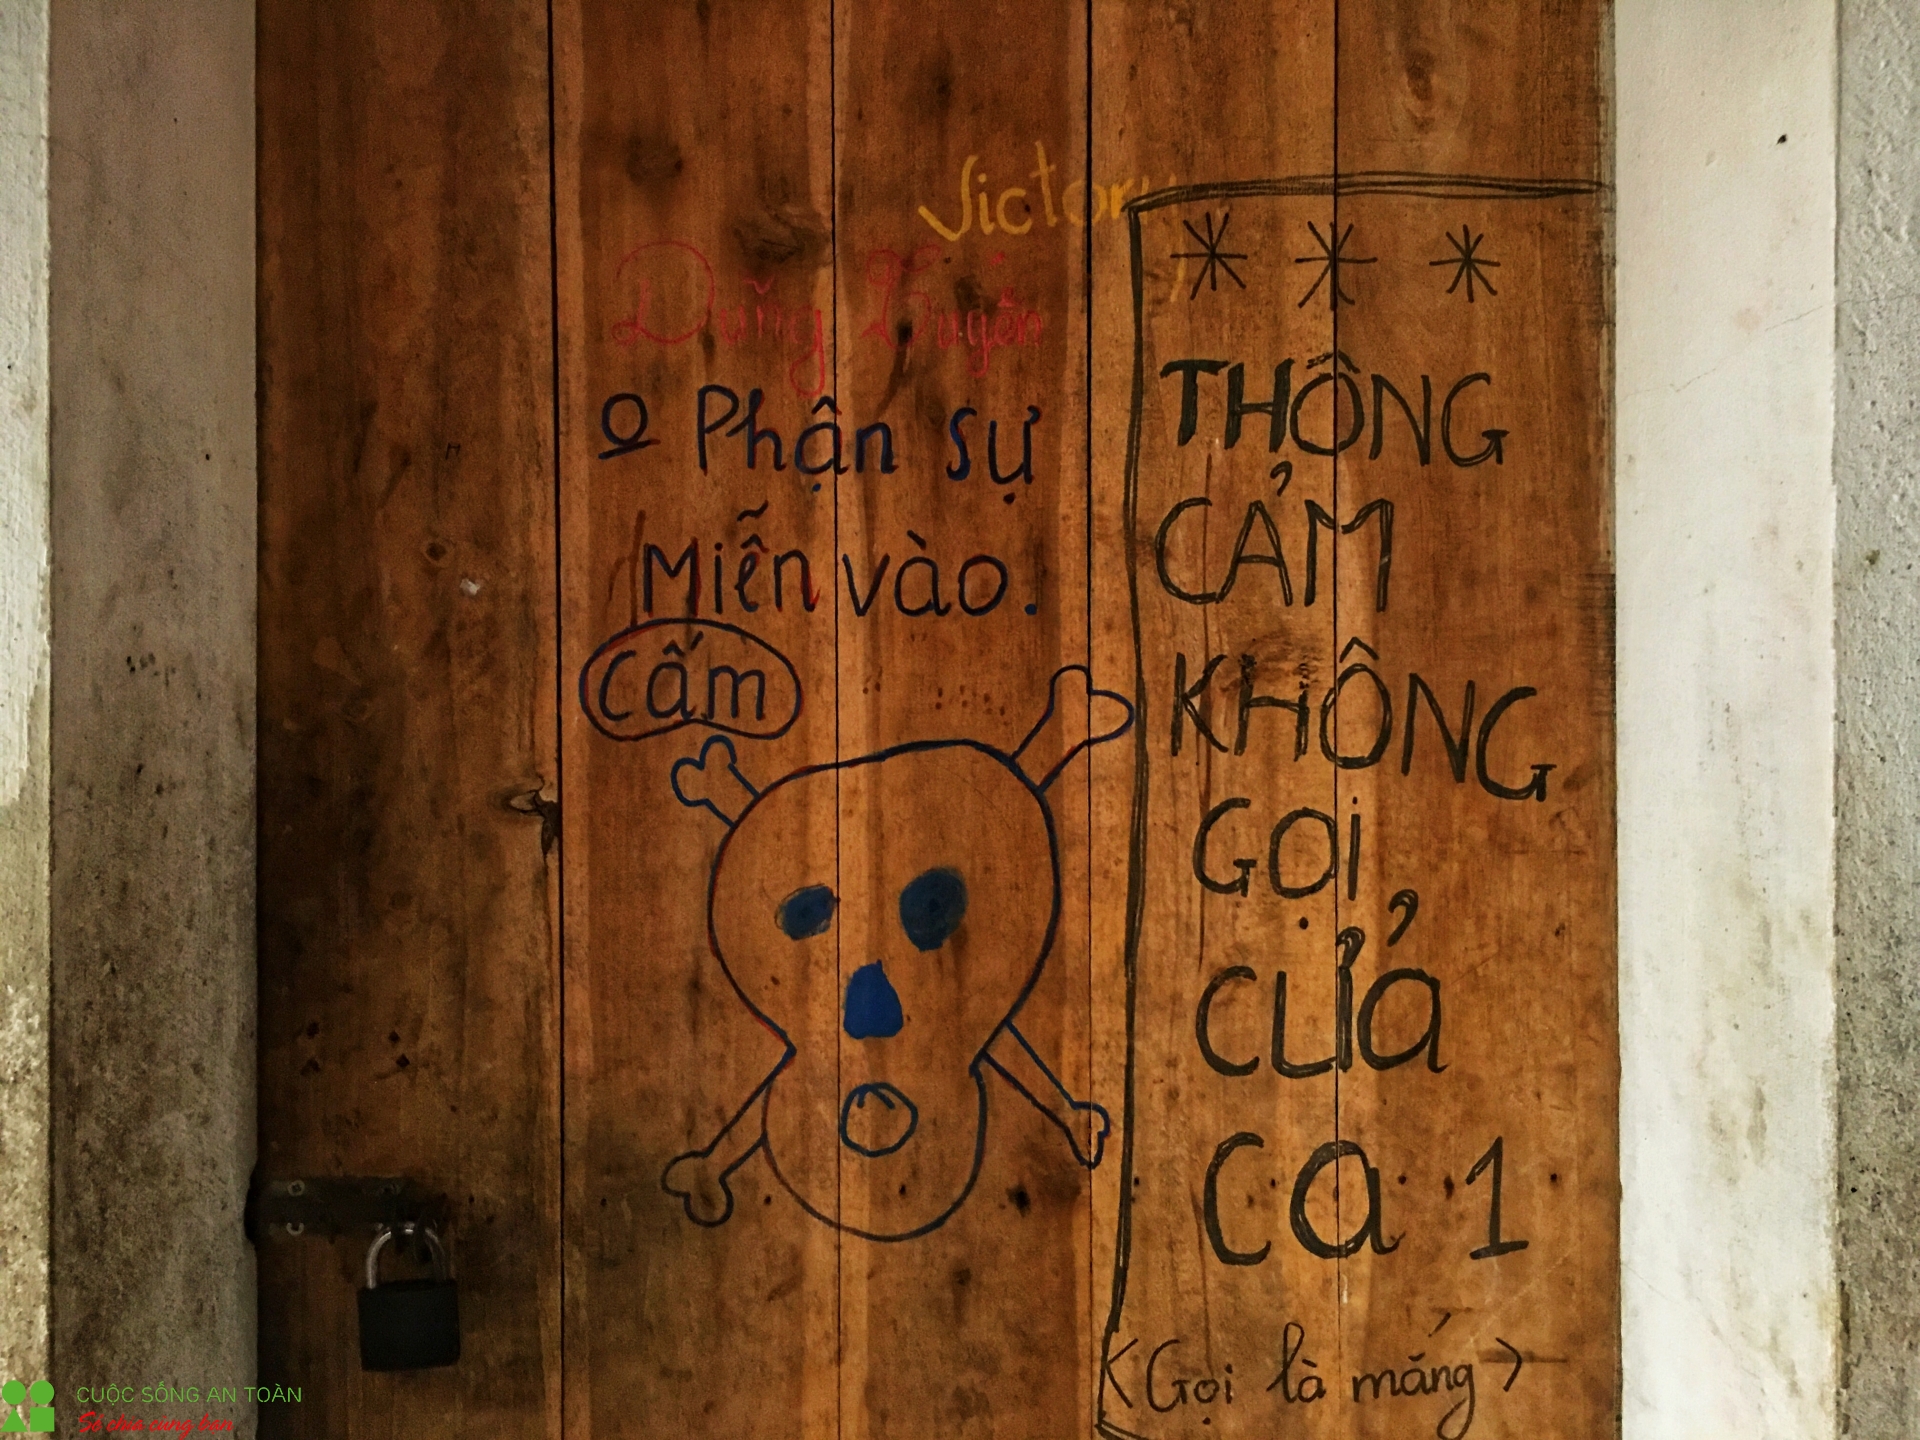 Victory
Dũng Tuyến
O Phận sự
Miễn vào.
Cấm
* * *
THÔNG
CẢM
KHÔNG
GỌI
CỬA
CA 1
<Gọi là mắng>
CUỘC SỐNG AN TOÀN
Sẻ chia cùng bạn